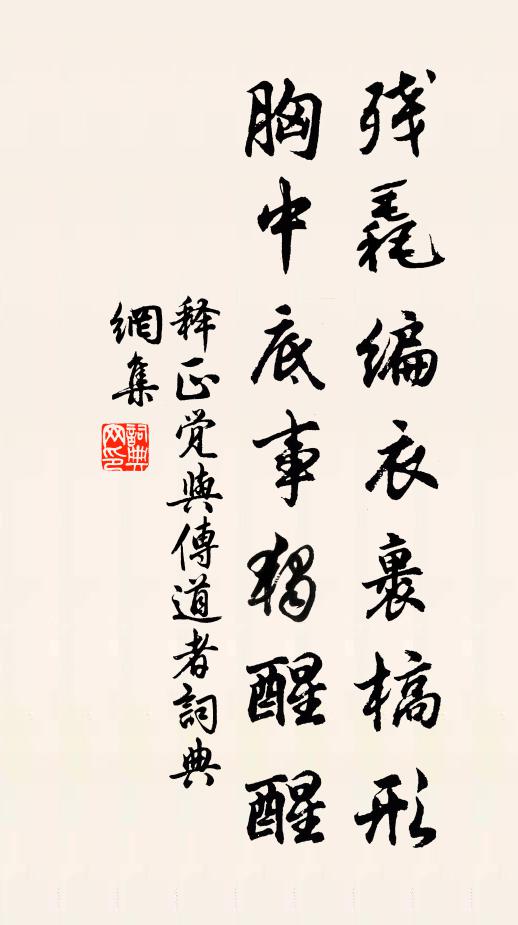 残毳编衣裹槁形
胸中底事独醒醒
释正觉与傳道者詞典
網集
詞典網印